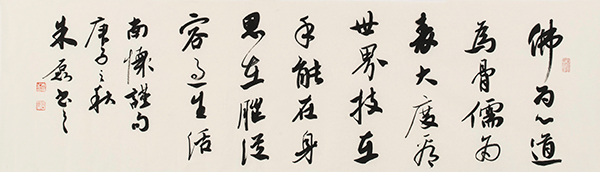 佛为心道
為骨儒为
表大度看
世界技在
手能在身
思在腦從
容過生活
南懷謹句
庚子之秋
朱书之